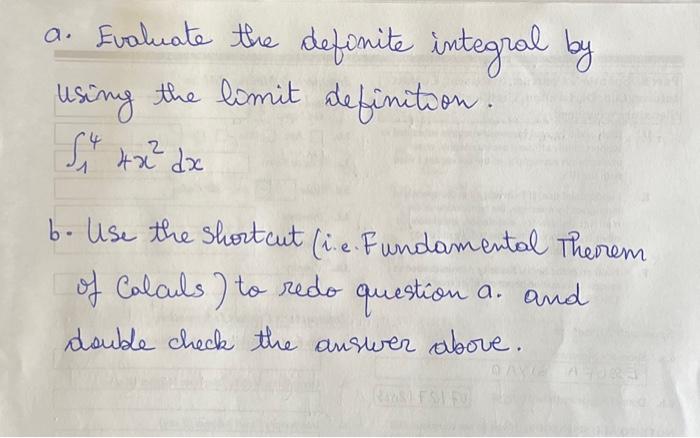 a. Evaluate the definite integral by
using the limit definition.
∫₁⁴ 4x² dx
b. Use the shortcut (i.e. Fundamental Therem
of Calculs) to redo question a. and
double check the answer above.